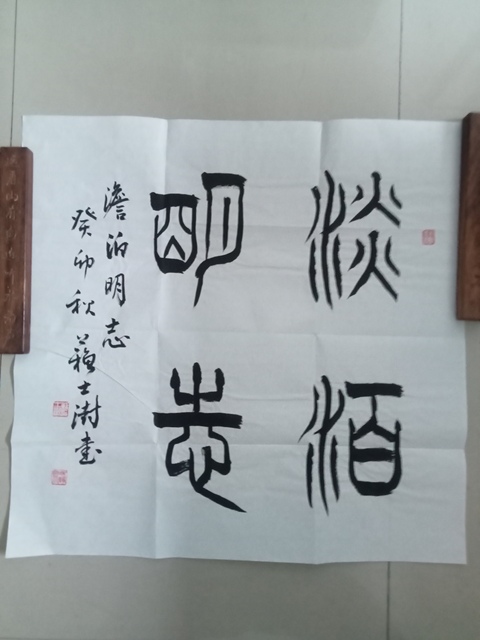 淡泊
明志
澹泊明志
癸卯秋 苏士澍书